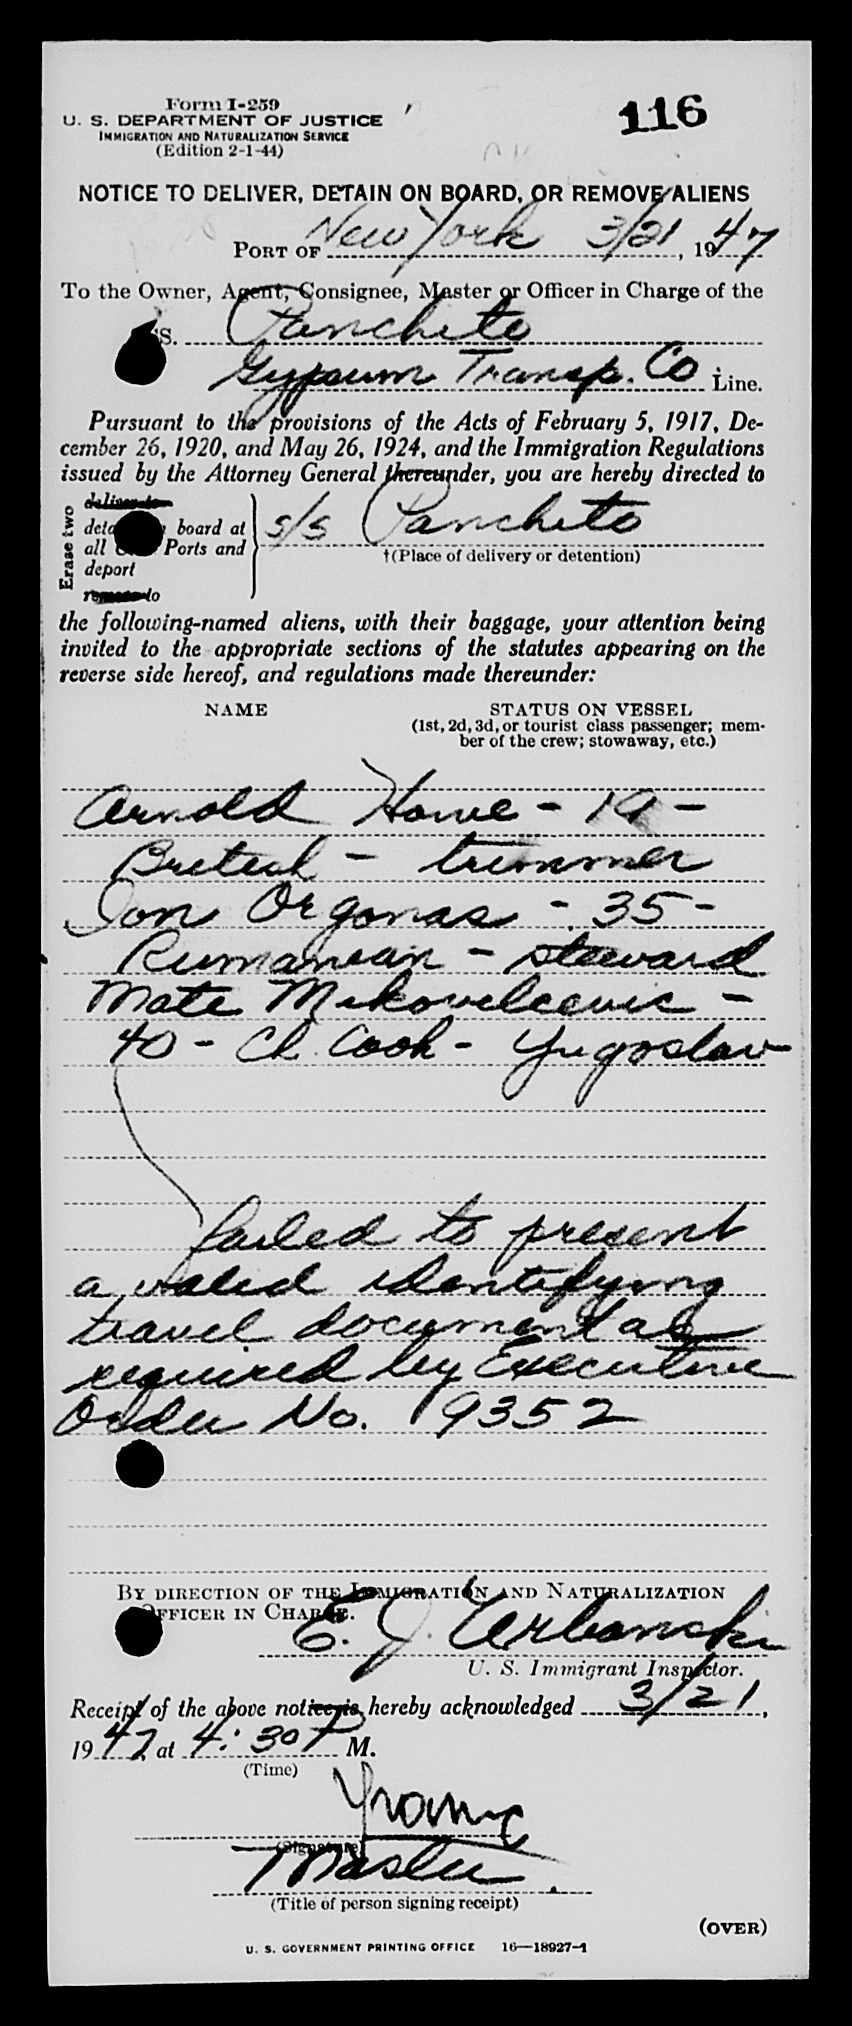 Form I-259
U. S. DEPARTMENT OF JUSTICE
IMMIGRATION AND NATURALIZATION SERVICE
(Edition 2-1-44)
116
NOTICE TO DELIVER, DETAIN ON BOARD, OR REMOVE ALIENS
PORT OF New York 3/21, 1947
To the Owner, Agent, Consignee, Master or Officer in Charge of the
SS. Panchito
Gypsum Transp. Co. Line.
Pursuant to the provisions of the Acts of February 5, 1917, De-
cember 26, 1920, and May 26, 1924, and the Immigration Regulations
issued by the Attorney General thereunder, you are hereby directed to
Erase two
deliver to
board at
all Ports and
deport
remove to
s/s Panchito
†(Place of delivery or detention)
the following-named aliens, with their baggage, your attention being
invited to the appropriate sections of the statutes appearing on the
reverse side hereof, and regulations made thereunder:
NAME STATUS ON VESSEL
(1st, 2d, 3d, or tourist class passenger; mem-
ber of the crew; stowaway, etc.)
Arnold Howe - 19 -
British - trimmer
Ion Organas - 35 -
Rumanian - steward
Mate -
40 - Ch. Cook - Yugoslav
failed to present
a valid identifying
travel document as
required by Executive
Order No. 9352
BY DIRECTION OF THE IMMIGRATION AND NATURALIZATION
OFFICER IN CHARGE.
E. J. Urbanski
U. S. Immigrant Inspector.
Receipt of the above notice is hereby acknowledged 3/21,
1947 at 4:30 P M.
(Time)
(Signature)
Master
(Title of person signing receipt)
(OVER)
U. S. GOVERNMENT PRINTING OFFICE 16—18927-1